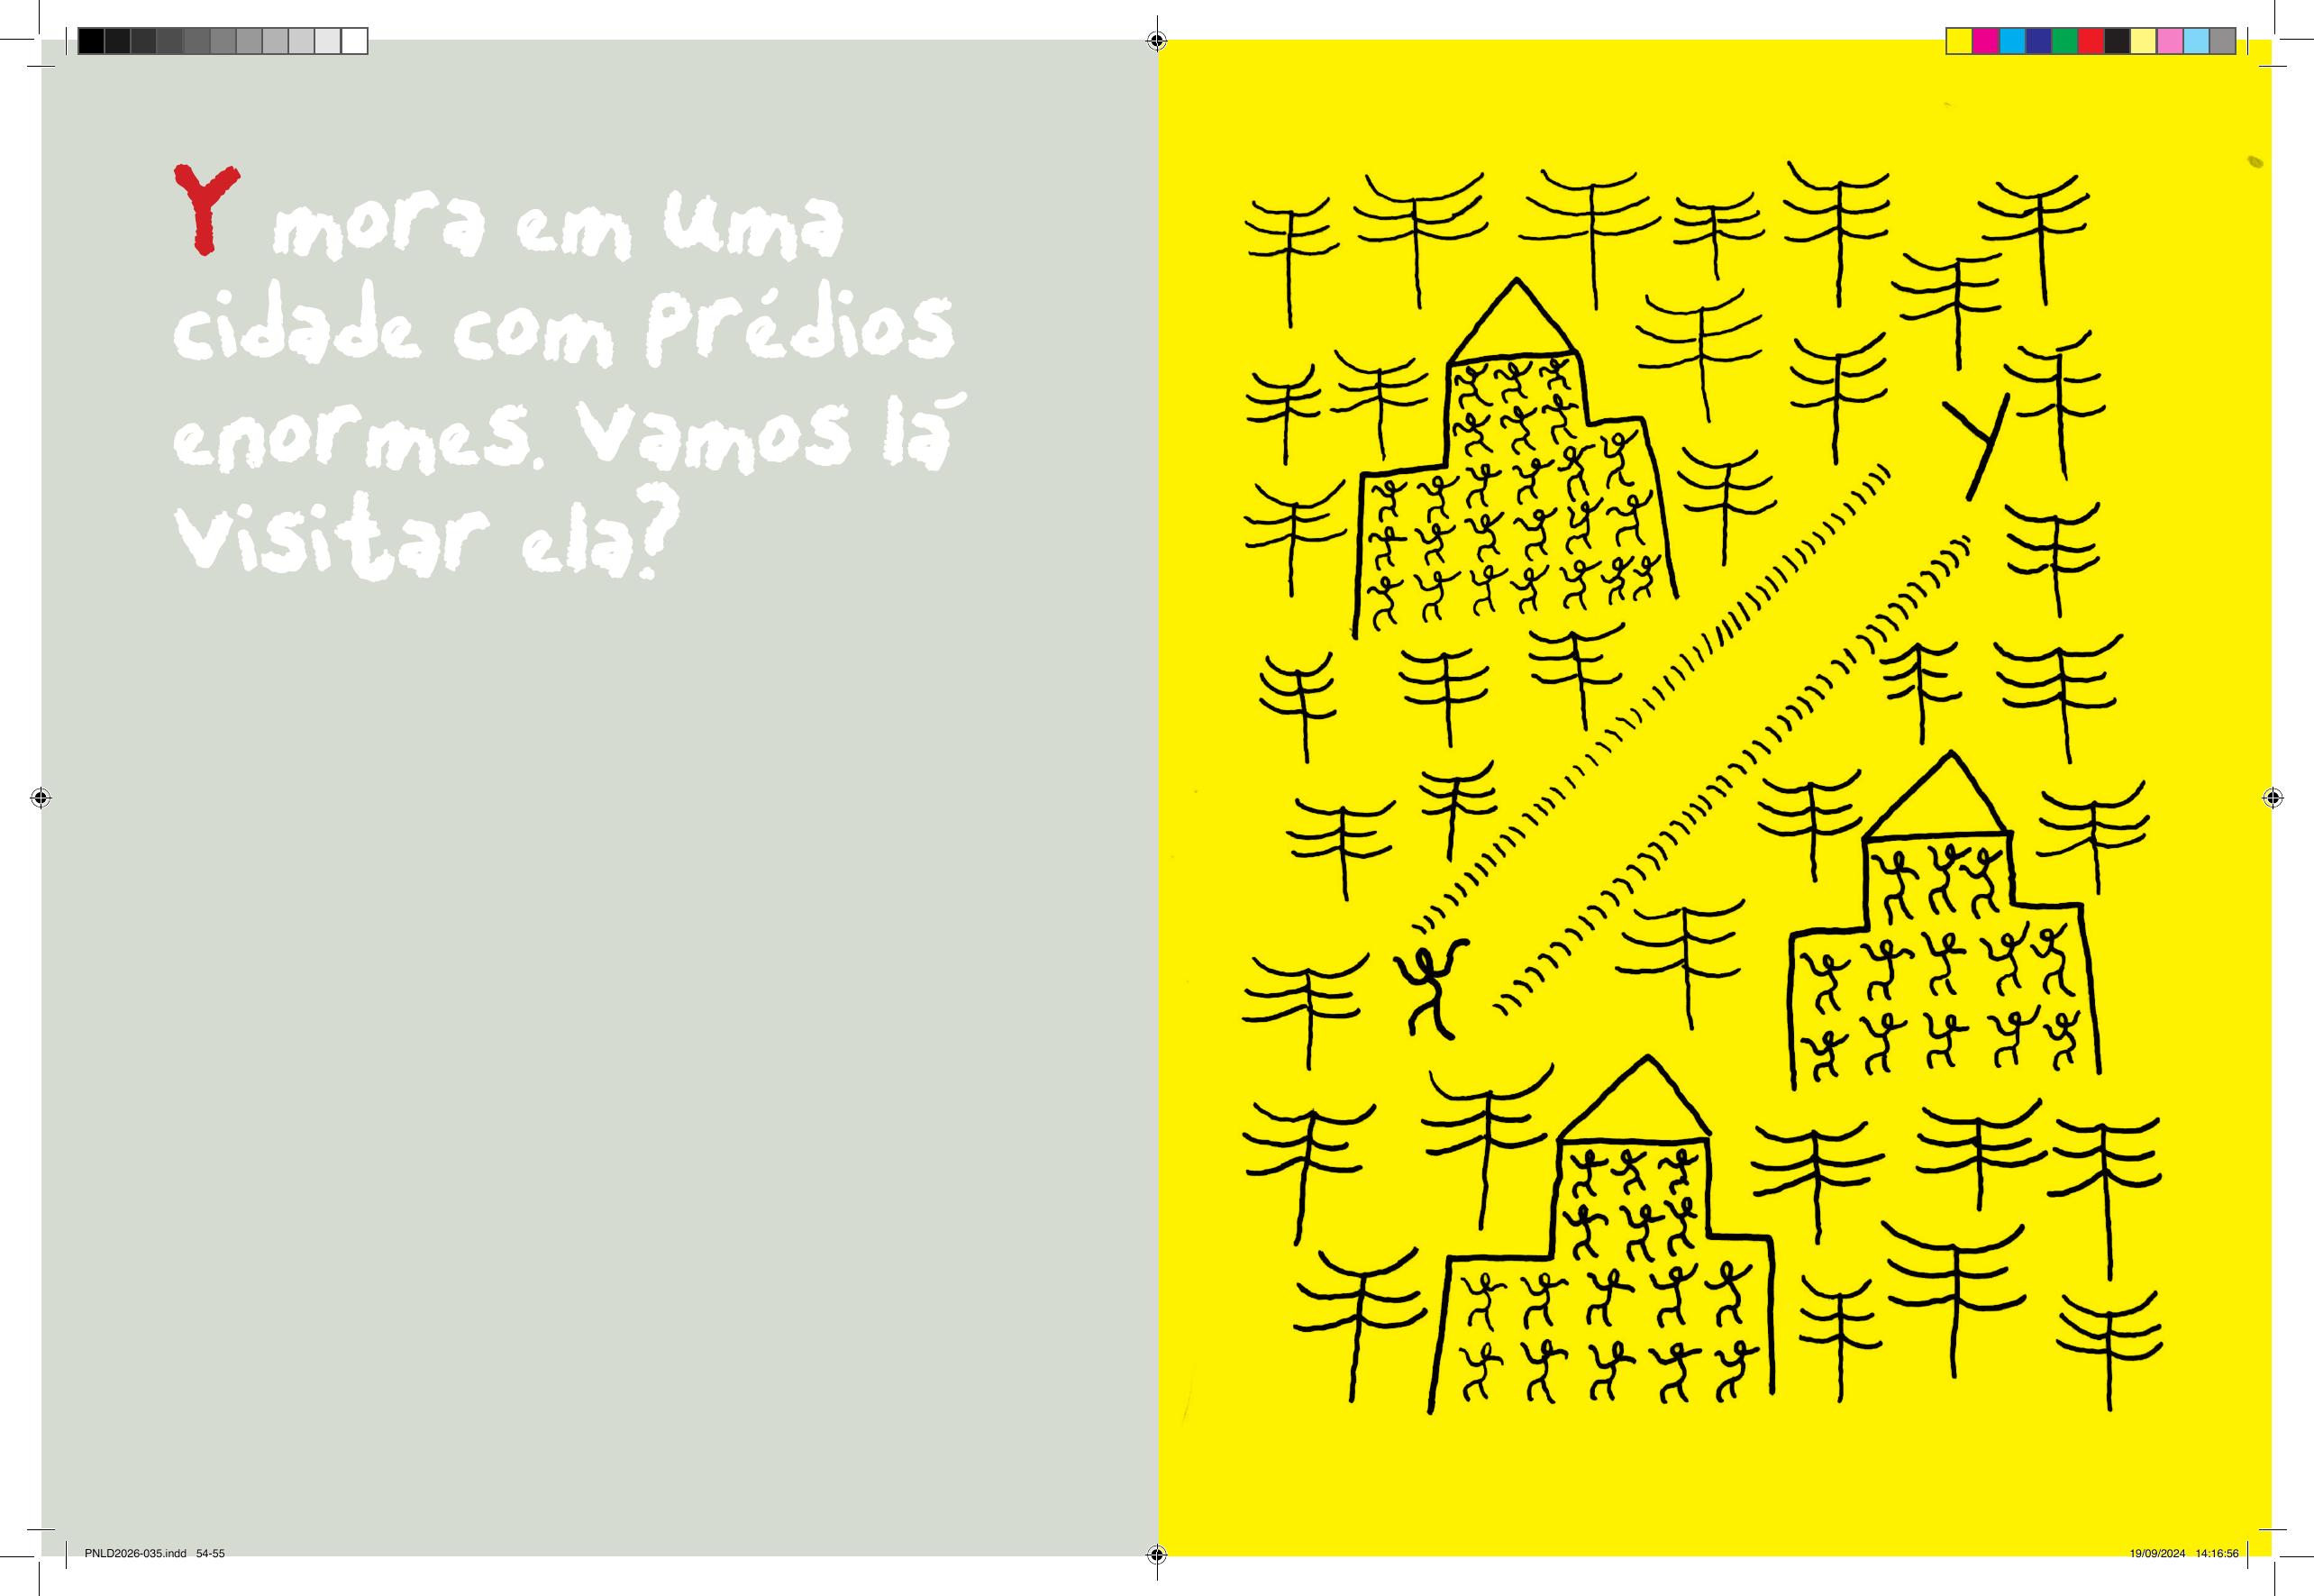 Y mora em uma
cidade com prédios
enormes. Vamos lá
visitar ela?
Y
PNLD2026-035.indd 54-55
19/09/2024 14:16:56